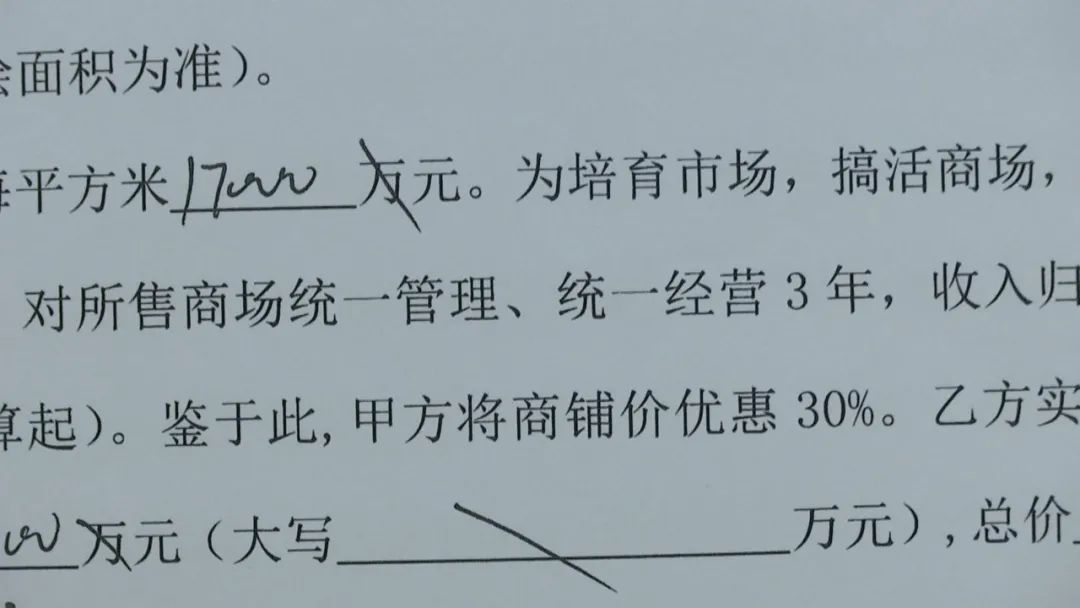 面积为准)。
平方米17000万元。为培育市场，搞活商场，
对所售商场统一管理、统一经营3年，收入归
算起)。鉴于此,甲方将商铺价优惠30%。乙方实
万元（大写 万元）,总价